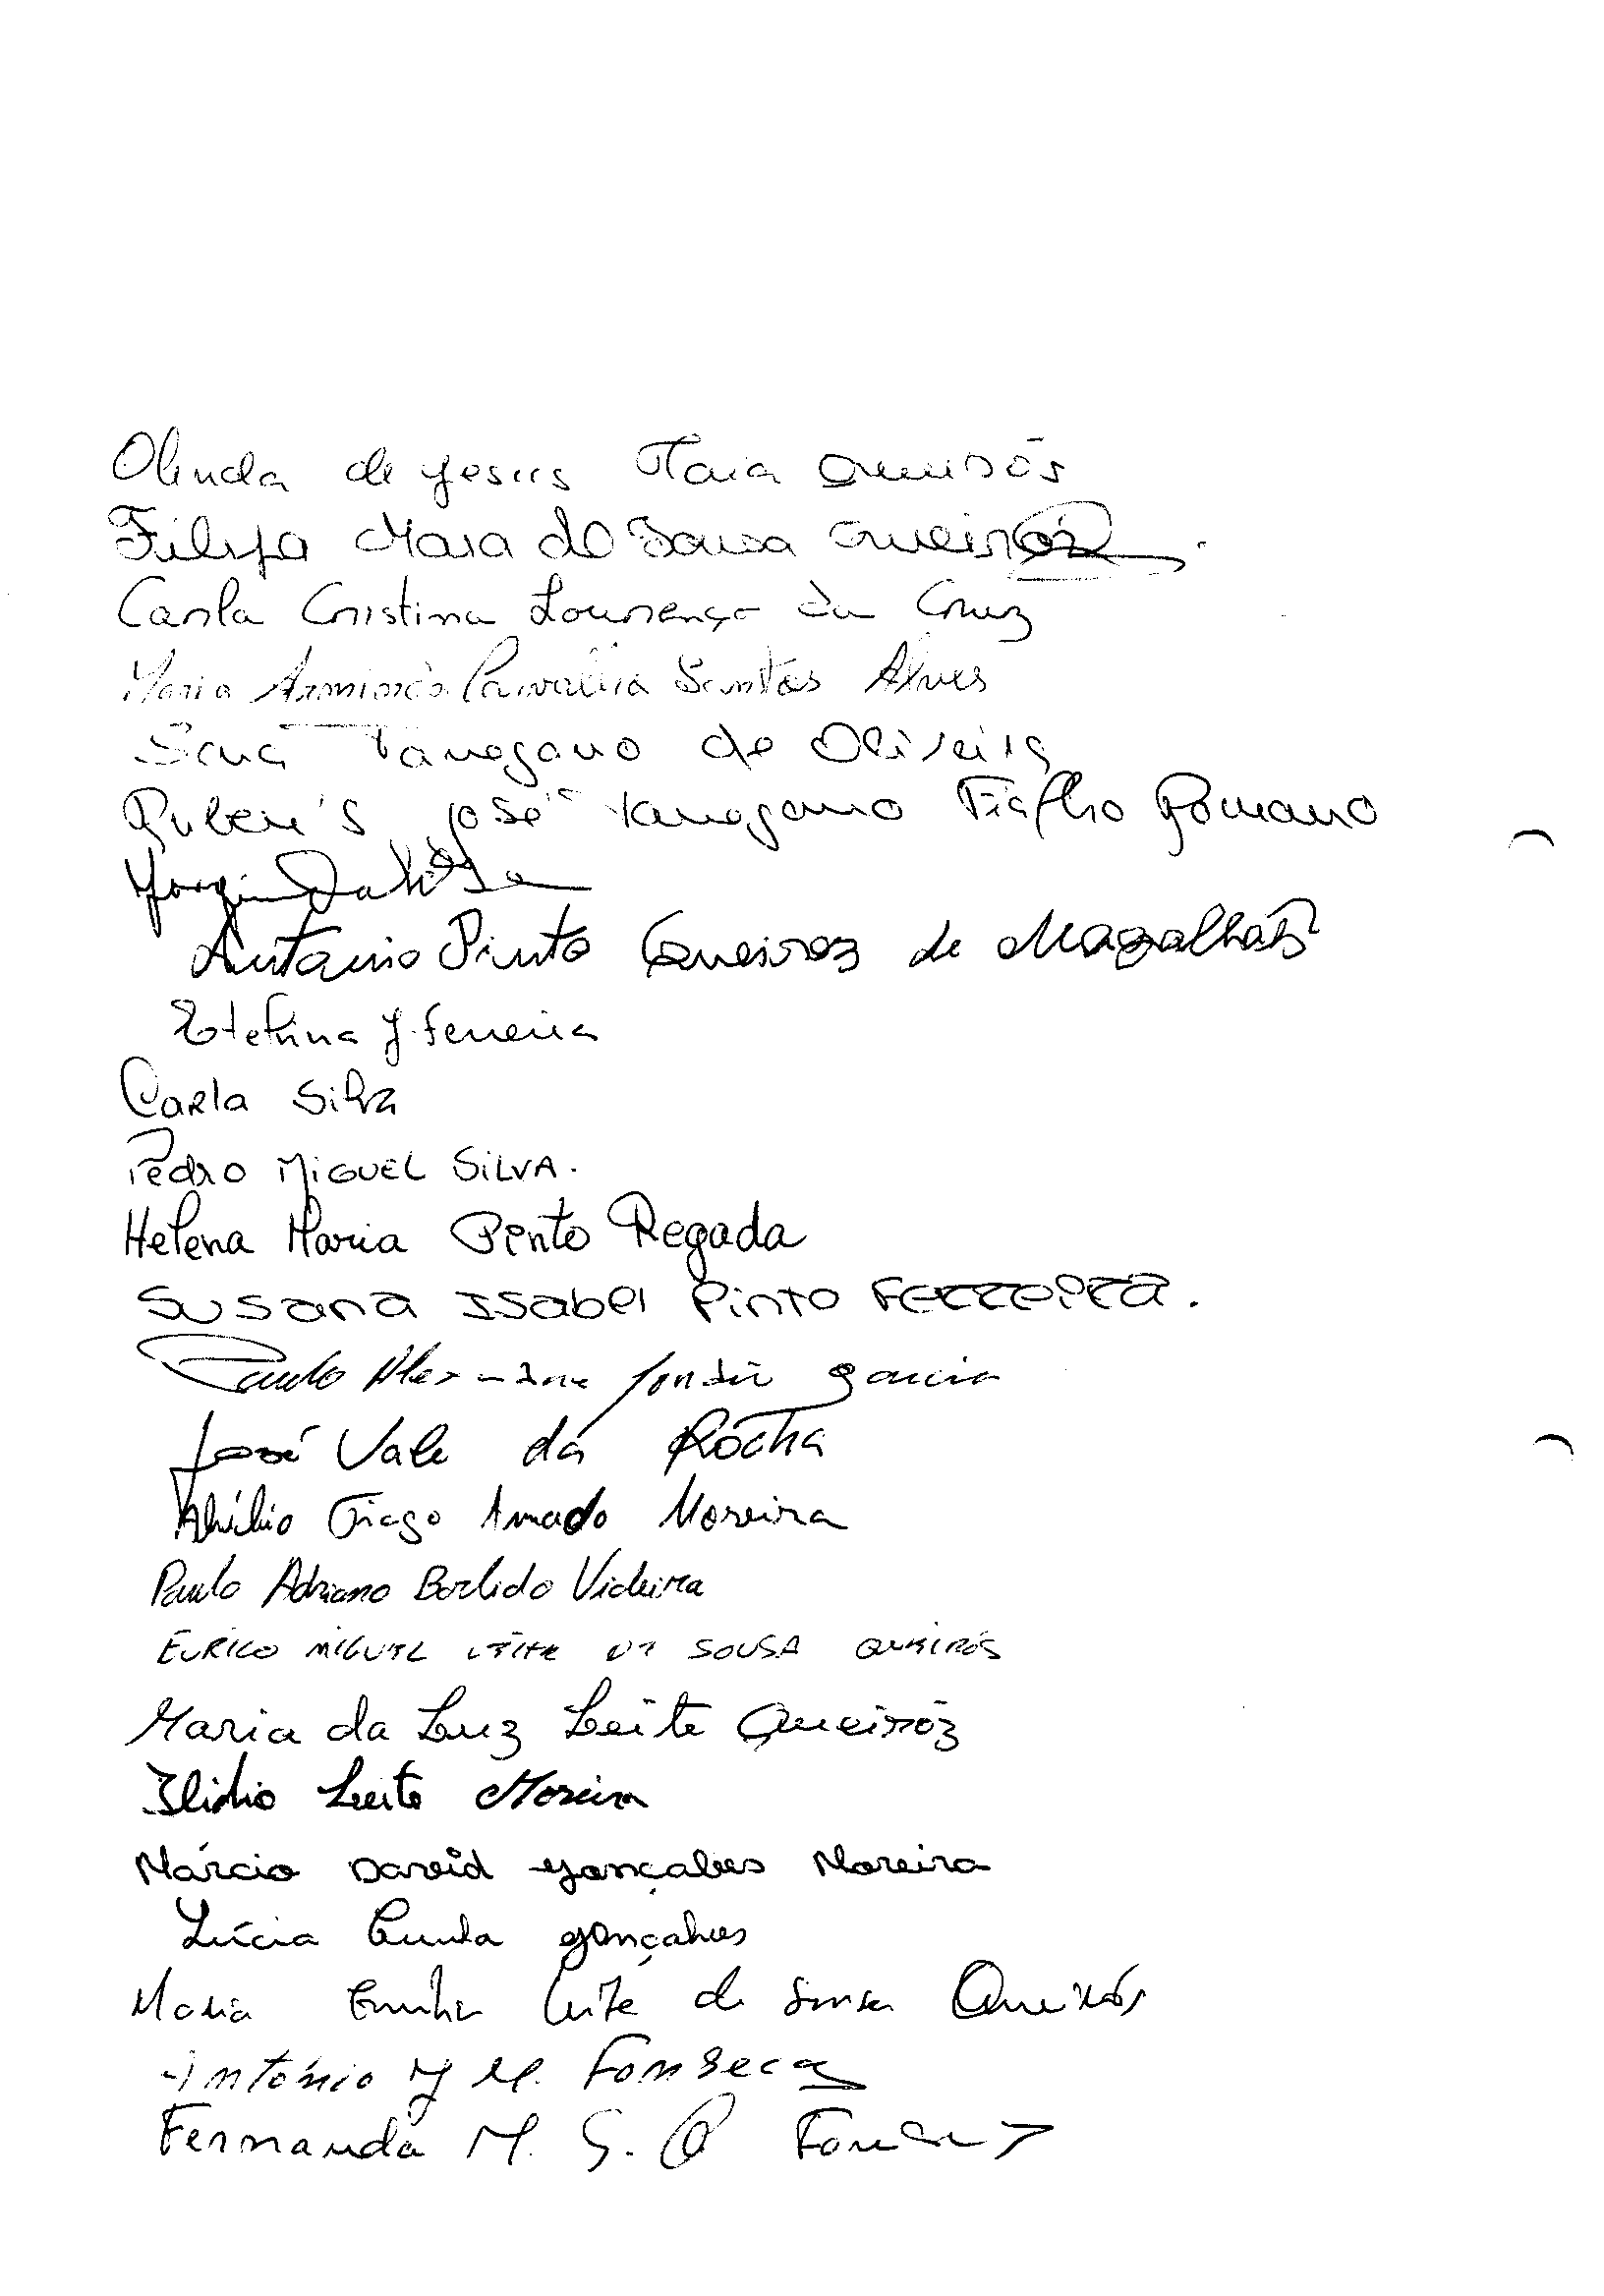 Olinda de Jesus Maia Queirós
Filipa Maia de Sousa Queiroz
Carla Cristina Lourenço da Cruz
Maria Arminda Carvalho Santos Alves
de Oliveira
José Fialho Romano
António Pinto Queiroz de Magalhães
Etelvina J. Ferreira
Carla Silva
Pedro Miguel Silva.
Helena Maria Pinto Regada
Susana Isabel Pinto Ferreira.
Paulo Garcia
José Vale da Rocha
Abílio Tiago Amado Moreira
Paulo Adriano Borlido Videira
Eurico Miguel Leite de Sousa Queirós
Maria da Luz Leite Queiróz
Ilídio Leite Moreira
Márcio David Gonçalves Moreira
Lúcia Cunha Gonçalves
Maria Emília Leite de Sousa Queirós
António J M. Fonseca
Fernanda M. S. Q Fonseca